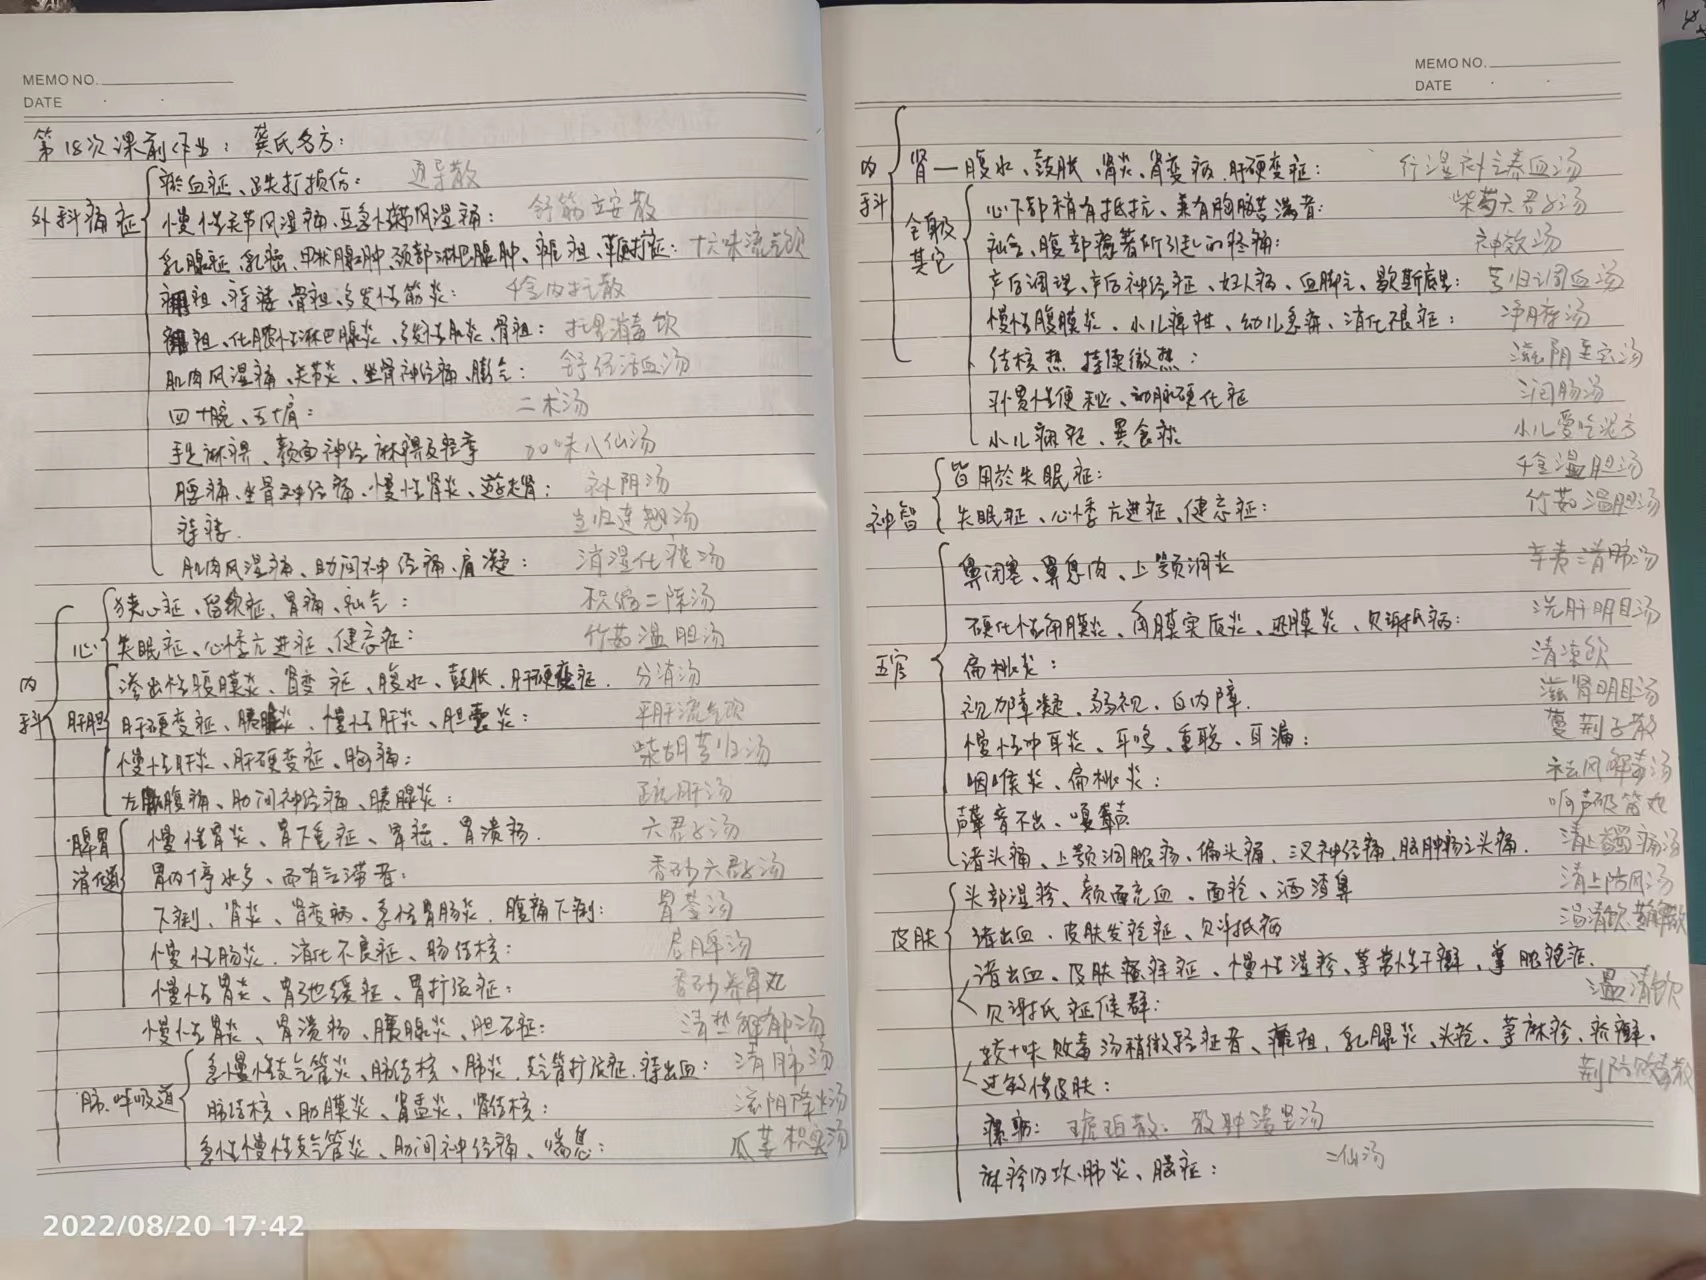 MEMO NO.
DATE
第18次课前作业：龚氏名方：
外科痛症
瘀血症、跌打损伤： 通导散
慢性关节风湿痛、亚急性关节风湿痛： 舒筋立安散
乳腺症、乳癌、甲状腺肿、颈部淋巴腺肿、瘰疽、鞭打症：十六味流气饮
疽、痔瘘、骨疽、多发性筋炎： 千金内托散
疽、化脓性淋巴腺炎、多发性肌炎、骨疽： 托里消毒饮
肌肉风湿痛、关节炎、坐骨神经痛、膨气： 舒经活血汤
四十腕、五十肩： 二术汤
手足麻痹、颜面神经麻痹及轻季 加味八仙汤
腰痛、坐骨神经痛、慢性肾炎、游走肾： 补阴汤
痔瘘. 当归连翘汤
肌肉风湿痛、肋间神经痛、肩凝： 消湿化痰汤
内科
心
狭心症、留饮症、胃痛、疝气： 枳缩二陈汤
失眠症、心悸亢进症、健忘症： 竹茹温胆汤
肝胆
渗出性腹膜炎、肾变症、腹水、鼓胀、肝硬变症. 分消汤
肝硬变症、胰腺炎、慢性肝炎、胆囊炎： 平肝流气饮
慢性肝炎、肝硬变症、胸痛： 柴胡芎归汤
左腹痛、肋间神经痛、胰腺炎： 疏肝汤
脾胃
消化道
慢性胃炎、胃下垂症、胃癌、胃溃疡. 六君子汤
胃内停水多、而有气滞者： 香砂六君子汤
下痢、肾炎、肾变病、急性胃肠炎、腹痛下痢： 胃苓汤
慢性肠炎、消化不良症、肠结核： 启脾汤
慢性胃炎、胃弛缓症、胃扩张症： 香砂养胃丸
慢性胃炎、胃溃疡、胰腺炎、胆石症： 清热解郁汤
肺、呼吸道
急慢性支气管炎、肺结核、肺炎、支气管扩张症、痔出血： 清肺汤
肺结核、肋膜炎、肾盂炎、肾结核： 滋阴降火汤
急性慢性支气管炎、肋间神经痛、喘息： 瓜蒌枳实汤
2022/08/20 17:42
MEMO NO.
DATE
内科
肾—腹水、鼓胀、肾炎、肾变病、肝硬变症： 行湿补气养血汤
全身及其它
心下部稍有抵抗、兼有胸胁苦满者： 柴芍六君子汤
疝气、腹部瘀著所引起的疼痛： 神效汤
产后调理、产后神经症、妇人病、血脚气、歇斯底里： 芎归调血汤
慢性腹膜炎、小儿痞块、幼儿急痛、消化不良症： 净腑汤
结核热 持续微热： 滋阴至宝汤
习惯性便秘、动脉硬化症 润肠汤
小儿疳症、异食症 小儿爱吃泥方
神智
皆用於失眠症： 千金温胆汤
失眠症、心悸亢进症、健忘症： 竹茹温胆汤
五官
鼻闭塞、鼻息肉、上颚洞炎 辛夷清肺汤
硬化性角膜炎、角膜实质炎、巩膜炎、贝谢氏病： 洗肝明目汤
扁桃炎： 清凉饮
视力障凝、弱视、白内障. 滋肾明目汤
慢性中耳炎、耳鸣、重聪、耳漏： 蔓荆子散
咽喉炎、扁桃炎： 祛风解毒汤
声音不出、嘎声 响声破笛丸
诸头痛、上颚洞脓疡、偏头痛、三叉神经痛、脑肿疡之头痛. 清上蠲痛汤
皮肤
头部湿疹、颜面充血、面疮、酒渣鼻 清上防风汤
诸出血、皮肤发疮症、贝谢氏病 温清饮
诸出血、皮肤瘙痒症、慢性湿疹、寻常性干癣、掌脓疱症.
贝谢氏症候群： 温清饮
较十味败毒汤稍微轻症者、痈疽、乳腺炎、头疮、荨麻疹、疥癣、
过敏性皮肤： 荆防败毒散
瘰疬： 琥珀散、散肿溃坚汤
麻疹内攻、肺炎、脑症： 二仙汤